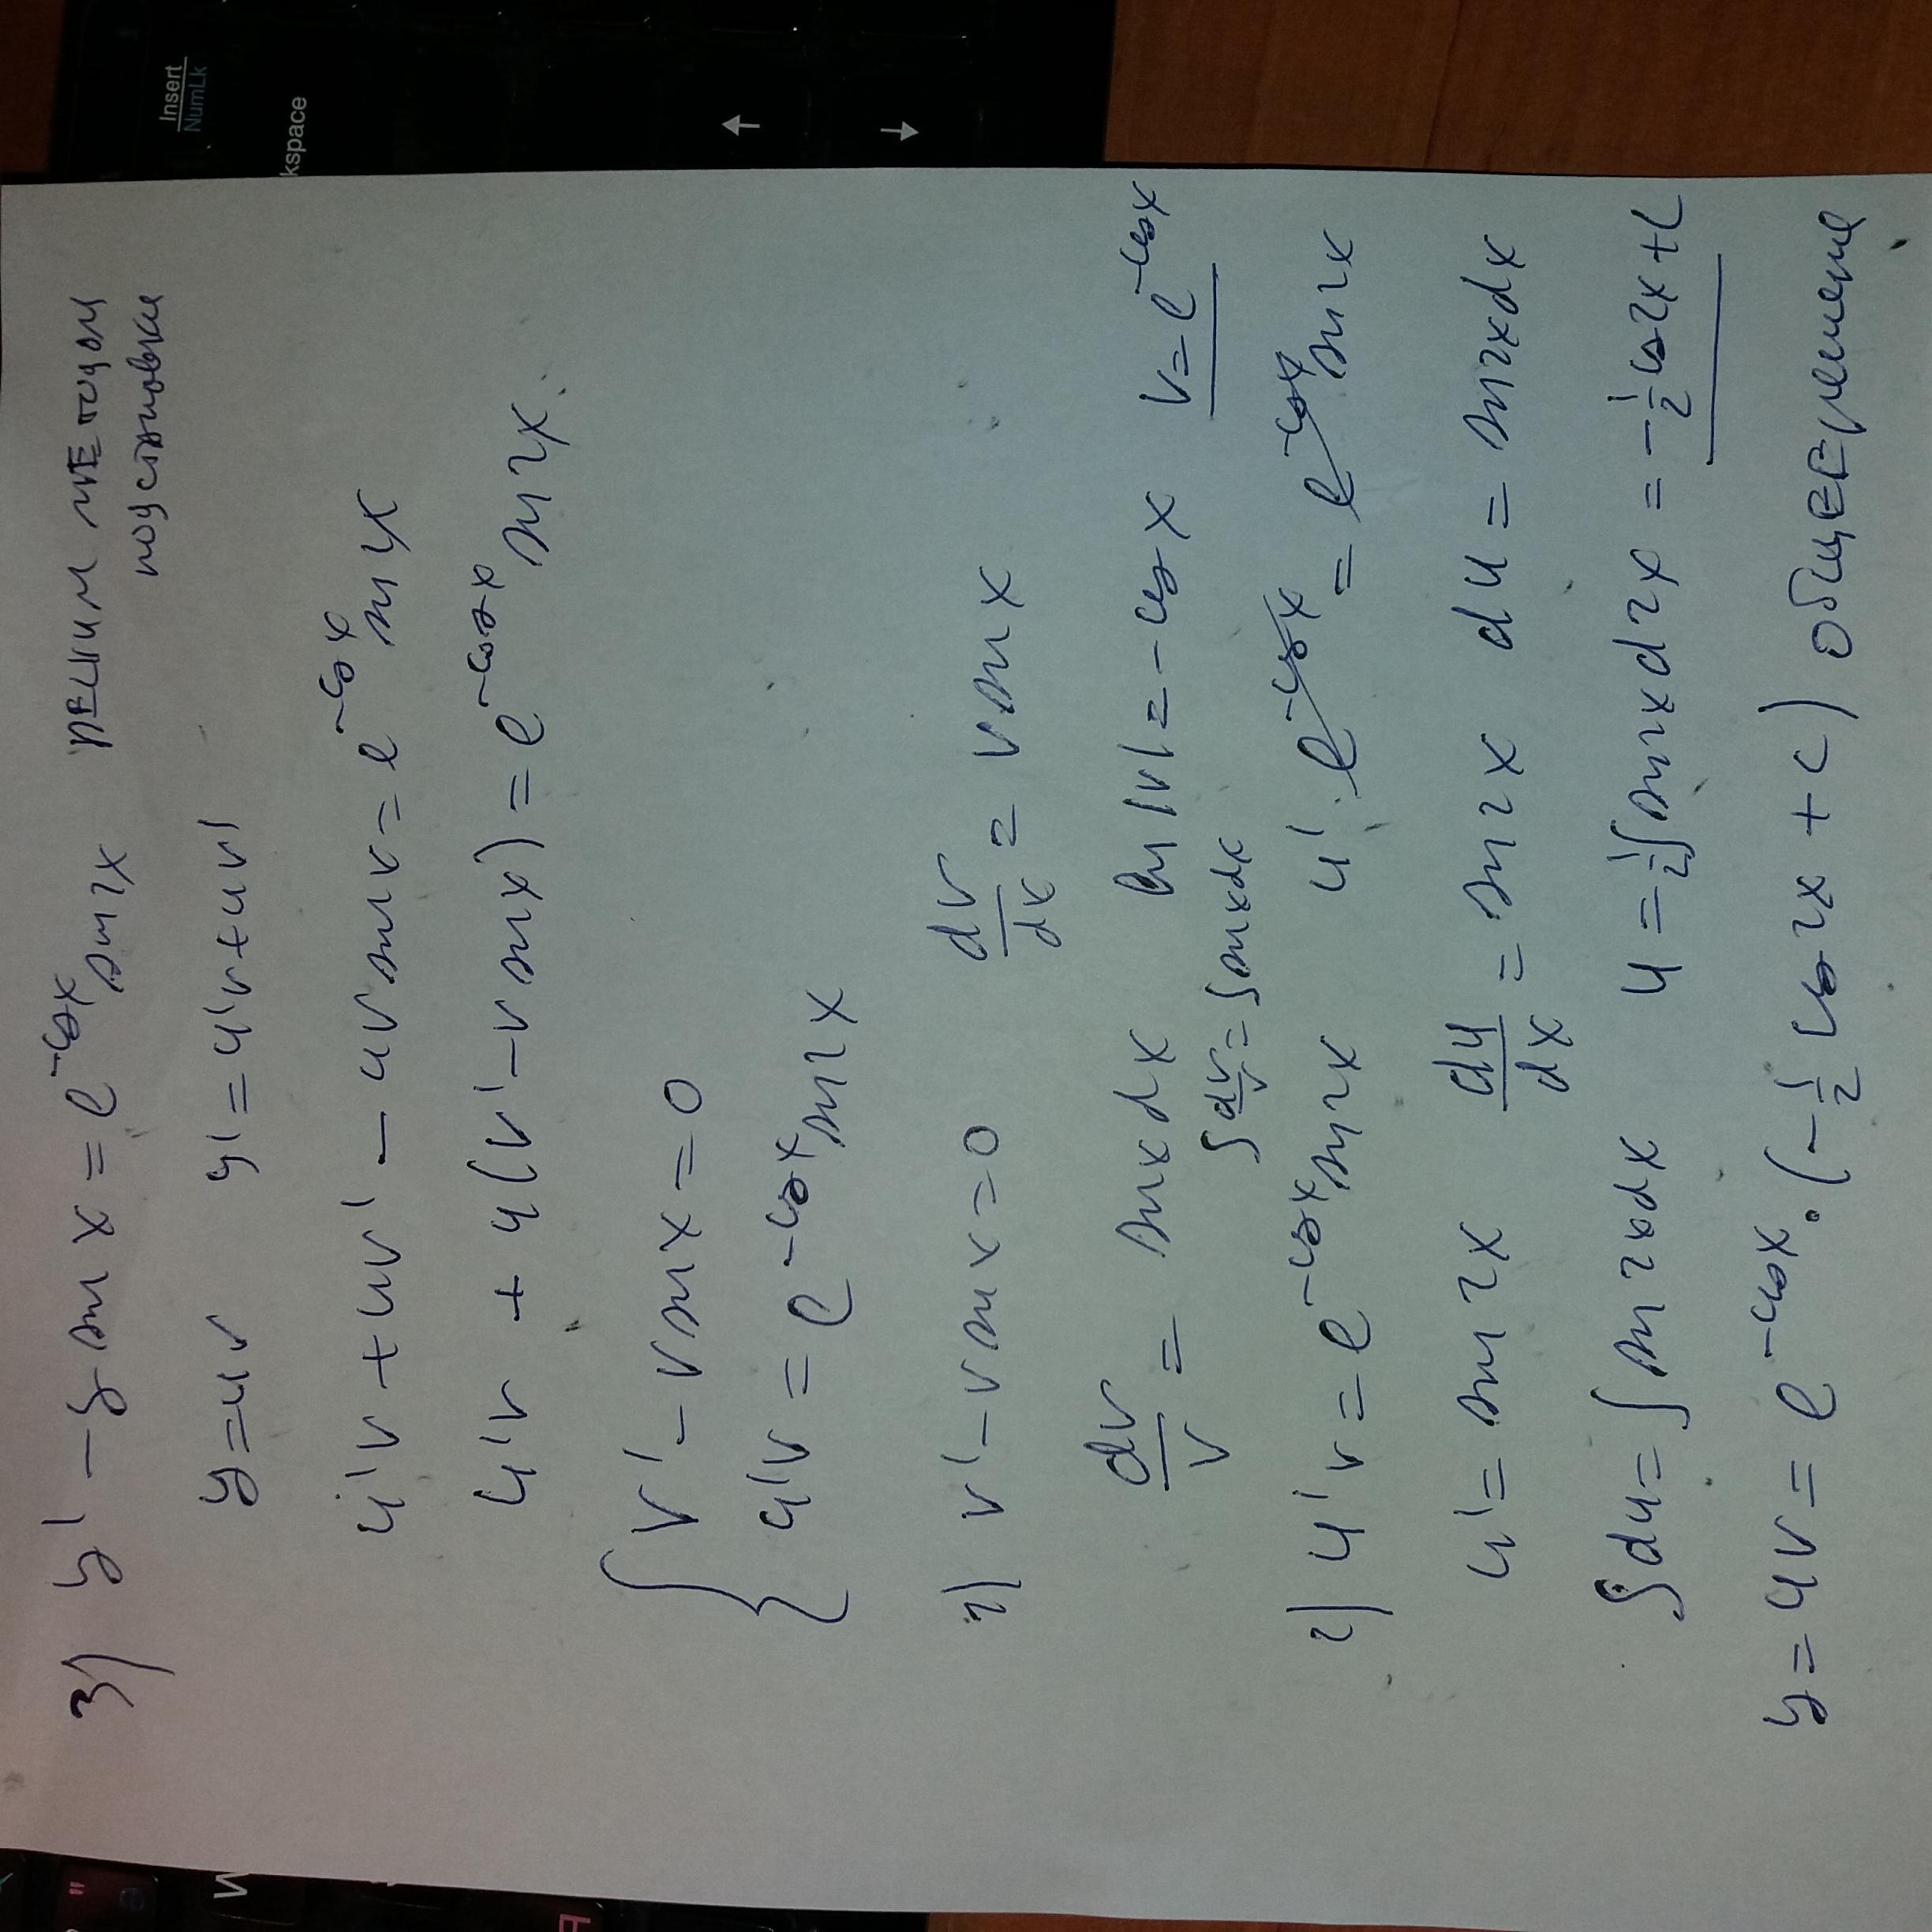 3) y' - y sin x = e^{-cos x} sin 2x решим методом
подстановки
y = uv y' = u'v + uv'
u'v + uv' - uv sin x = e^{-cos x} sin 2x
u'v + u(v' - v sin x) = e^{-cos x} sin 2x
{ v' - v sin x = 0
u'v = e^{-cos x} sin 2x
1) v' - v sin x = 0 dv/dx = v sin x
dv/v = sin x dx ln|v| = -cos x v = e^{-cos x}
∫dv/v = ∫sin x dx
2) u'v = e^{-cos x} sin 2x u' · e^{-cos x} = e^{-cos x} sin 2x
u' = sin 2x du/dx = sin 2x du = sin 2x dx
∫du = ∫sin 2x dx u = 1/2 ∫sin 2x d2x = -1/2 cos 2x + C
y = uv = e^{-cos x} · (-1/2 cos 2x + C) общее решение
Insert
NumLk
kspace
↑
↓
"
W